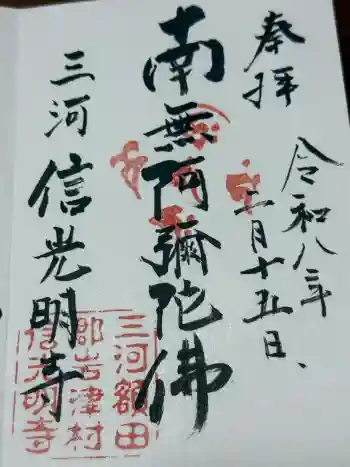 奉拝
令和八年
二月十五日、
南無阿彌陀佛
三河 信光明寺
三河額田
郡岩津村
信光明寺